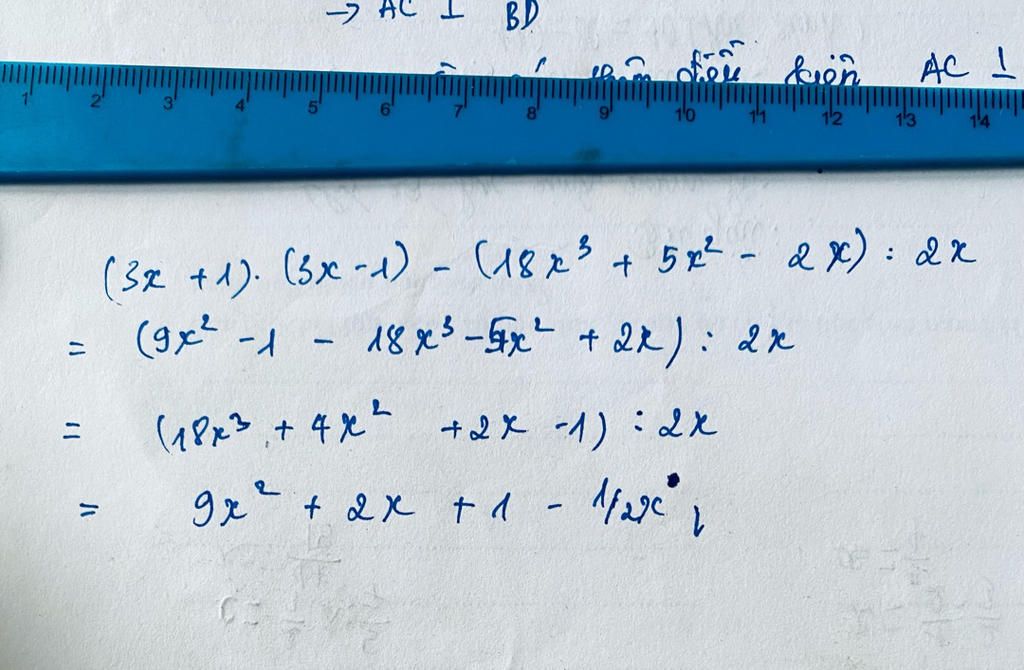 → AC ⊥ BD
điều kiện AC ⊥
1 2 3 4 5 6 7 8 9 10 11 12 13 14
(3x + 1). (3x - 1) - (18x³ + 5x² - 2x) : 2x
= (9x² - 1 - 18x³ - 5x² + 2x) : 2x
= (18x³ + 4x² + 2x - 1) : 2x
= 9x² + 2x + 1 - 1/2x